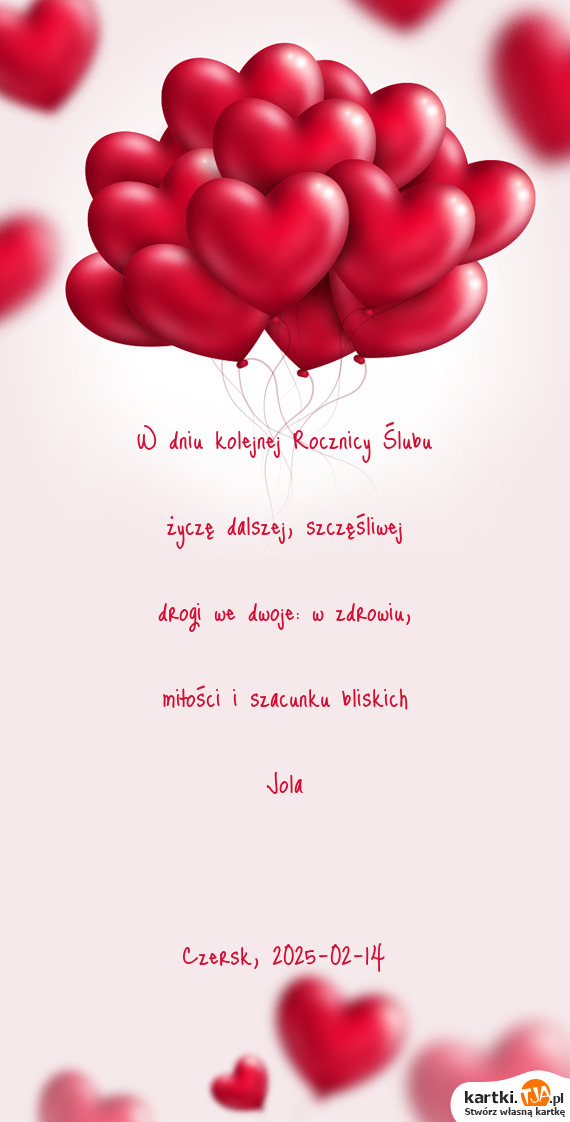 W dniu kolejnej Rocznicy Ślubu
życzę dalszej, szczęśliwej
drogi we dwoje: w zdrowiu,
miłości i szacunku bliskich
Jola
Czersk, 2025-02-14
kartki.TJA.pl
Stwórz własną kartkę